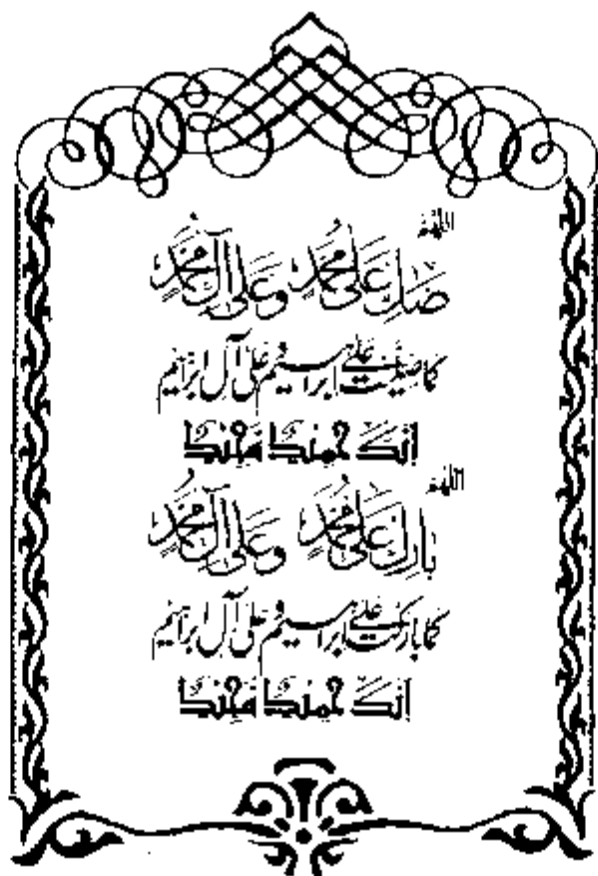 اللهم صل على محمد وعلى آل محمد
كما صليت على ابراهيم وعلى آل ابراهيم
انك حميد مجيد
اللهم بارك على محمد وعلى آل محمد
كما باركت على ابراهيم وعلى آل ابراهيم
انك حميد مجيد